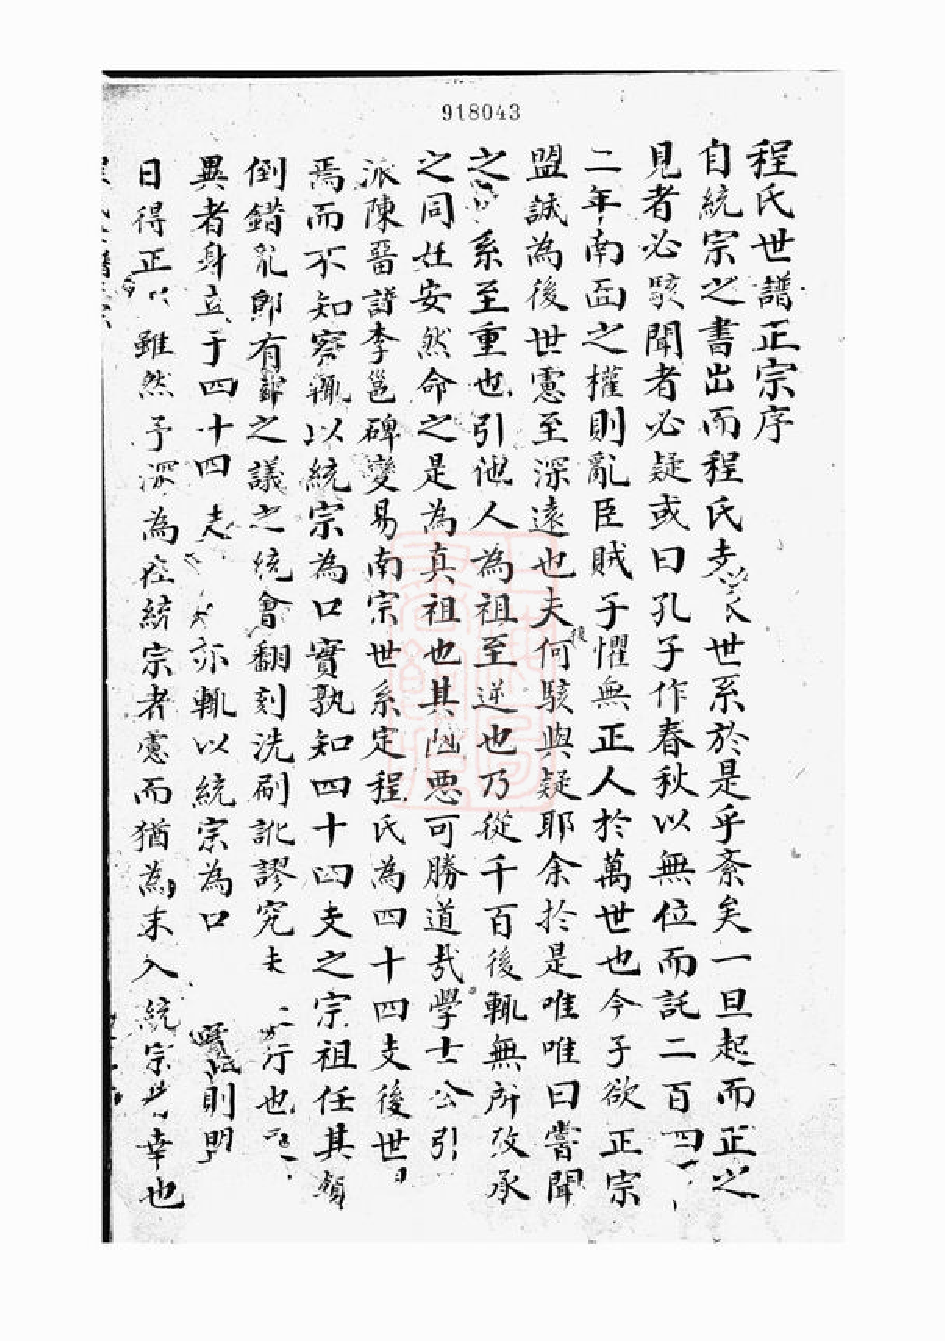 918043
程氏世譜正宗序
自統宗之書出而程氏支世系於是乎紊矣一旦起而正之
見者必駭聞者必疑或曰孔子作春秋以無位而託二百四
二年南面之權則亂臣賊子懼無正人於萬世也今子欲正宗
盟誠為後世慮至深遠也夫何駭與疑耶余於是唯唯曰嘗聞
之系至重也引他人為祖至逆也乃從千百後輒無所攷承
之同妊安然命之是為真祖也其凶惡可勝道哉學士公引
派陳嗇譜李邕碑變易南宗世系定程氏為四十四支後世
焉而不知察輒以統宗為口實孰知四十四支之宗祖任其顛
倒錯亂郎有之議之統會翻刻洗刷訛謬究夫行也
異者身立于四十四亦輒以統宗為口則明
日得正雖然予深為在統宗者慮而猶為未入統宗幸也